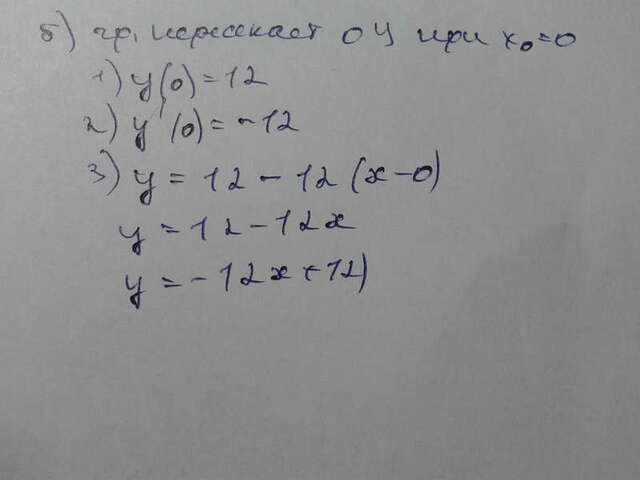 б) гр. пересекает ОУ при x₀=0
1) y(0)=12
2) y'(0)=-12
3) y = 12 - 12 (x-0)
y = 12-12x
y = -12x+12)